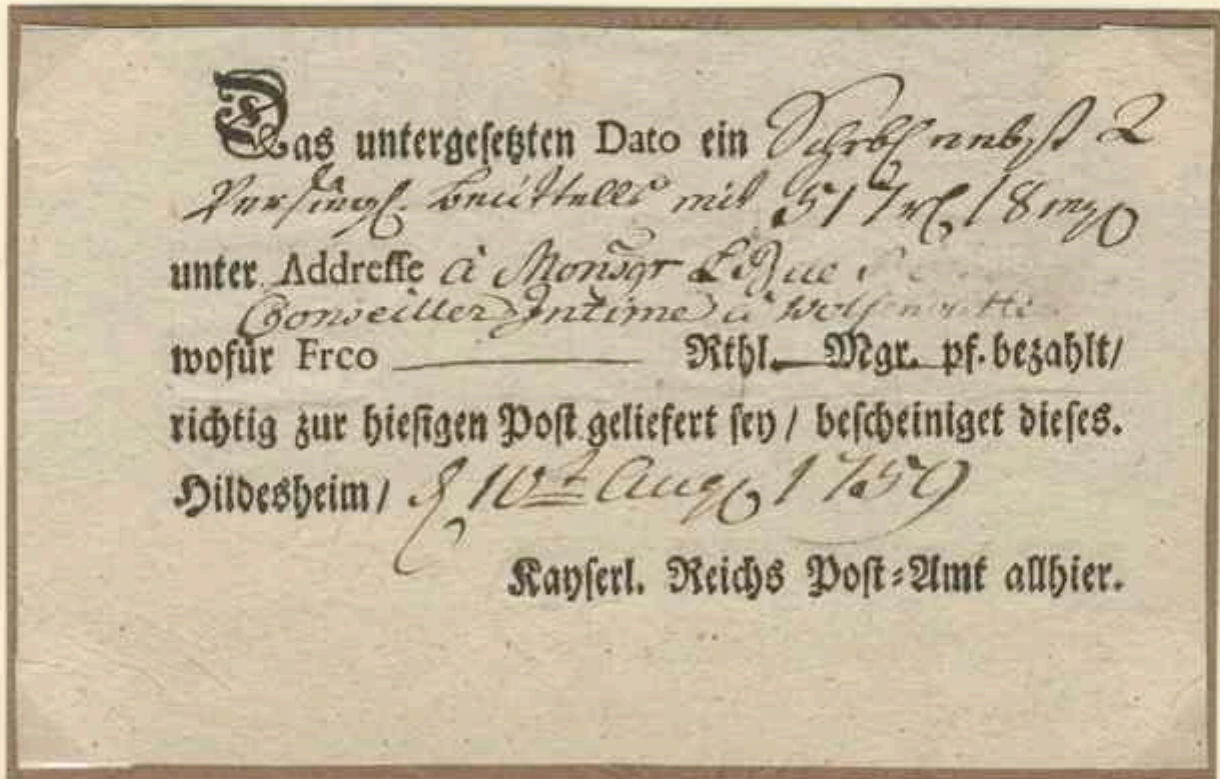 Das untergesetzten Dato ein Schrbl nebst 2
Versiegl. beüttells mit 517 rl 18 mg
unter Addresse à Monsgr
Conseiller Intime à Wolfenbutte
wofür Frco Rthl. Mgr. pf. bezahlt/
richtig zur hiesigen Post geliefert sey / bescheiniget dieses.
Hildesheim / d 10t Aug 1759
Kayserl. Reichs Post=Amt allhier.